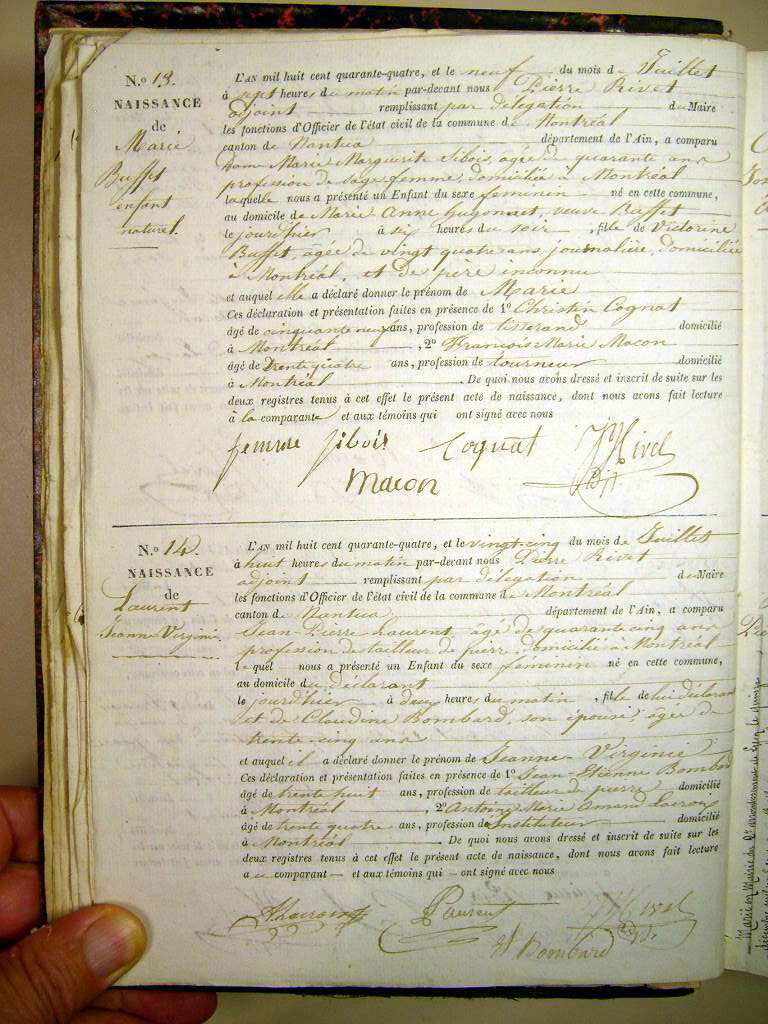 N.o 13.
NAISSANCE
de
Marie
Buffet
enfant
naturel.
L'AN mil huit cent quarante-quatre, et le neuf du mois de Juillet
à sept heures du matin par-devant nous Pierre Rivet
adjoint remplissant par délégation du Maire
les fonctions d'Officier de l'état civil de la commune de Montréal
canton de Nantua département de l'Ain, a comparu
Dame Marie Marguerite Sibois, âgée de quarante ans
profession de sage femme, domiciliée à Montréal
laquelle nous a présenté un Enfant du sexe féminin né en cette commune,
au domicile de Marie Anne Guyonnet, veuve Buffet
le jour d'hier à six heures du soir, fille de Victorine
Buffet, âgée de vingt quatre ans, journalière, domiciliée
à Montréal, et de père inconnu
et auquel elle a déclaré donner le prénom de Marie
Ces déclaration et présentation faites en présence de 1o Christin Cognat
âgé de cinquante neuf ans, profession de tisserand domicilié
à Montréal, 2o François Marie Macon
âgé de trente quatre ans, profession de tourneur domicilié
à Montréal. De quoi nous avons dressé et inscrit de suite sur les
deux registres tenus à cet effet le présent acte de naissance, dont nous avons fait lecture
à la comparante et aux témoins qui ont signé avec nous
femme Sibois Cognat Rivet
Macon
N.o 14.
NAISSANCE
de
Laurent
Jeanne Virginie.
L'AN mil huit cent quarante-quatre, et le vingt-cinq du mois de Juillet
à huit heures du matin par-devant nous Pierre Rivet
adjoint remplissant par délégation du Maire
les fonctions d'Officier de l'état civil de la commune de Montréal
canton de Nantua département de l'Ain, a comparu
Jean-Pierre Laurent, âgé de quarante cinq ans
profession de tailleur de pierre, domicilié à Montréal
lequel nous a présenté un Enfant du sexe féminin né en cette commune,
au domicile du déclarant
le jour d'hier à deux heures du matin, fille de lui déclarant
et de Claudine Bombard, son épouse, âgée de
trente-cinq ans
et auquel il a déclaré donner le prénom de Jeanne-Virginie
Ces déclaration et présentation faites en présence de 1o Jean-Etienne Bombard
âgé de trente huit ans, profession de tailleur de pierre domicilié
à Montréal, 2o Antoine Marie Amand
âgé de trente quatre ans, profession d'Instituteur domicilié
à Montréal. De quoi nous avons dressé et inscrit de suite sur les
deux registres tenus à cet effet le présent acte de naissance, dont nous avons fait lecture
au comparant — et aux témoins qui — ont signé avec nous
Laurent
Bombard